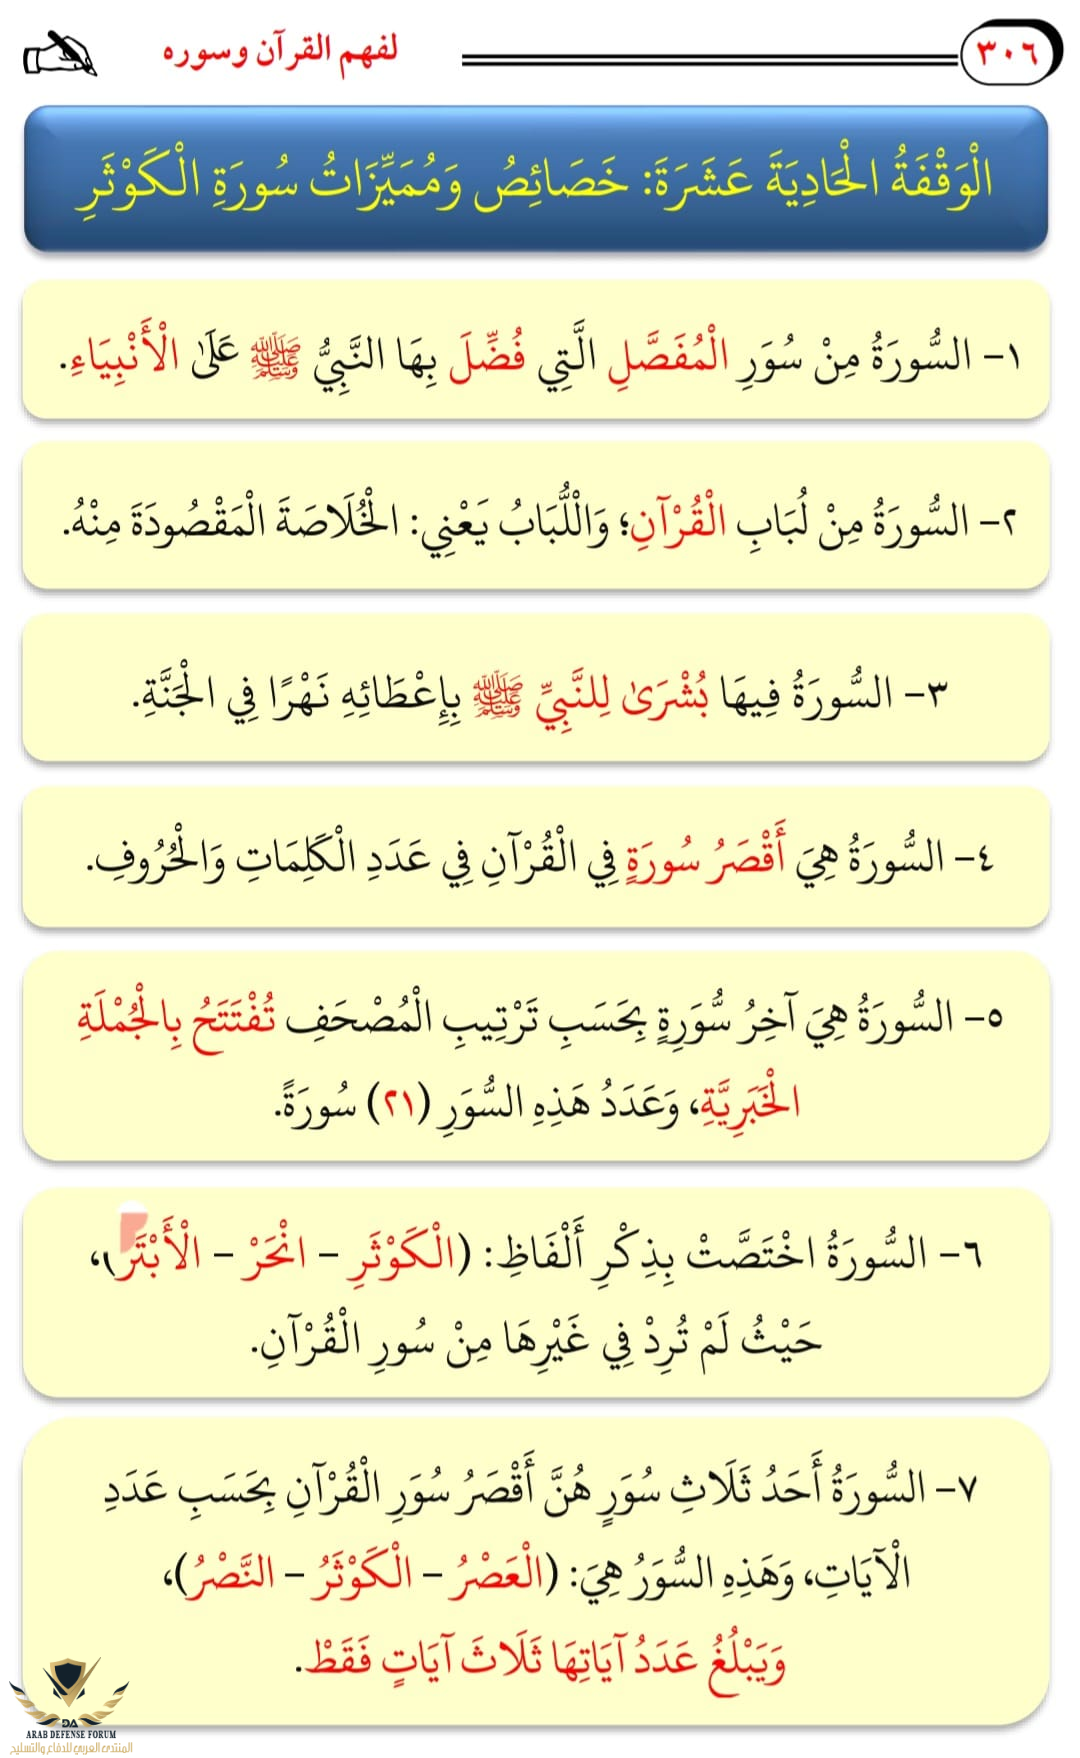 ٣٠٦
لفهم القرآن وسوره
الْوَقْفَةُ الْحَادِيَةَ عَشَرَةَ: خَصَائِصُ وَمُمَيِّزَاتُ سُورَةِ الْكَوْثَرِ
١- السُّورَةُ مِنْ سُوَرِ الْمُفَصَّلِ الَّتِي فُضِّلَ بِهَا النَّبِيُّ ﷺ عَلَى الْأَنْبِيَاءِ.
٢- السُّورَةُ مِنْ لُبَابِ الْقُرْآنِ؛ وَاللُّبَابُ يَعْنِي: الْخُلَاصَةَ الْمَقْصُودَةَ مِنْهُ.
٣- السُّورَةُ فِيهَا بُشْرَىٰ لِلنَّبِيِّ ﷺ بِإِعْطَائِهِ نَهْرًا فِي الْجَنَّةِ.
٤- السُّورَةُ هِيَ أَقْصَرُ سُورَةٍ فِي الْقُرْآنِ فِي عَدَدِ الْكَلِمَاتِ وَالْحُرُوفِ.
٥- السُّورَةُ هِيَ آخِرُ سُّورَةٍ بِحَسَبِ تَرْتِيبِ الْمُصْحَفِ تُفْتَتَحُ بِالْجُمْلَةِ
الْخَبَرِيَّةِ، وَعَدَدُ هَذِهِ السُّوَرِ (٢١) سُورَةً.
٦- السُّورَةُ اخْتَصَّتْ بِذِكْرِ أَلْفَاظِ: (الْكَوْثَرِ - انْحَرْ - الْأَبْتَرَ)،
حَيْثُ لَمْ تُرِدْ فِي غَيْرِهَا مِنْ سُورِ الْقُرْآنِ.
٧- السُّورَةُ أَحَدُ ثَلَاثِ سُوَرٍ هُنَّ أَقْصَرُ سُوَرِ الْقُرْآنِ بِحَسَبِ عَدَدِ
الْآيَاتِ، وَهَذِهِ السُّوَرُ هِيَ: (الْعَصْرُ - الْكَوْثَرُ - النَّصْرُ)،
وَيَبْلُغُ عَدَدُ آيَاتِهَا ثَلَاثَ آيَاتٍ فَقَطْ.
DA
ARAB DEFENSE FORUM
المنتدى العربي للدفاع والتسليح